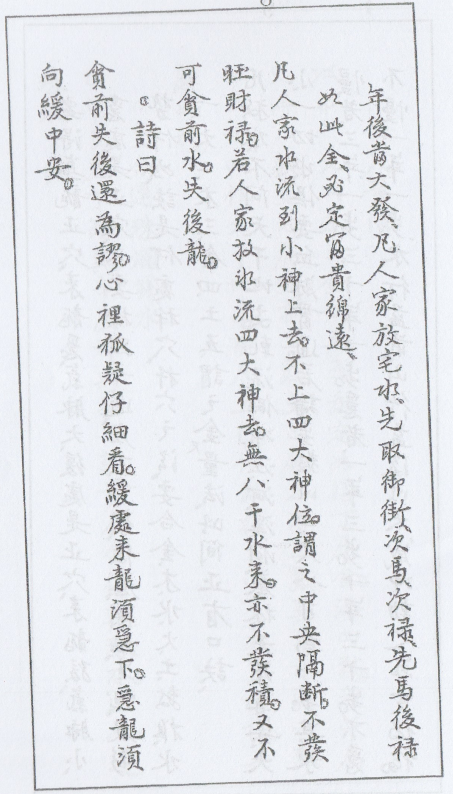 年後當大發、凡人家放宅水、先取御街、次馬、次祿、先馬後祿
如此全、必定富貴綿遠、
凡人家水流到小神上去、不上四大神位、謂之中央隔斷、不發
旺財祿、若人家放水流四大神去、無八干水來、亦不發積、又不
可貪前水失後龍。
詩曰
貪前失後還為謬、心裡狐疑仔細看、緩處来龍須急下、急龍須
向緩中安。